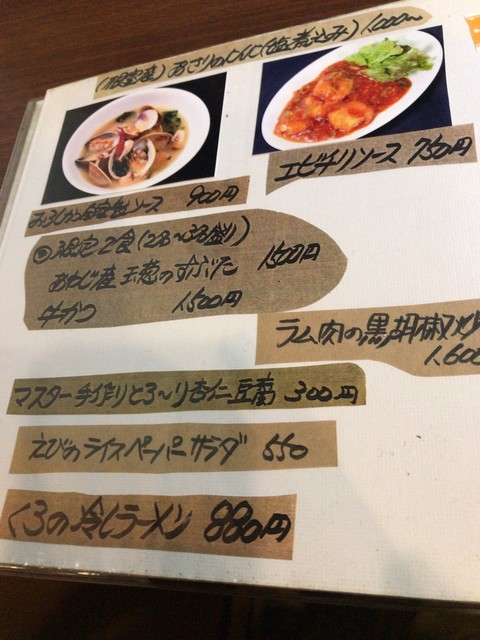 あさりのにんにく(塩煮込み) 1,000〜
エビチリソース 750円
ソース 900円
◎限定2食(2名〜3名盛り)
あわじ産 玉葱のすぶた 1500円
牛かつ 1,500円
ラム肉の黒胡椒炒
1,600
マスター手作りとろ〜り杏仁豆腐 300円
えびのライスペーパーサラダ 550
くろの冷しラーメン 880円